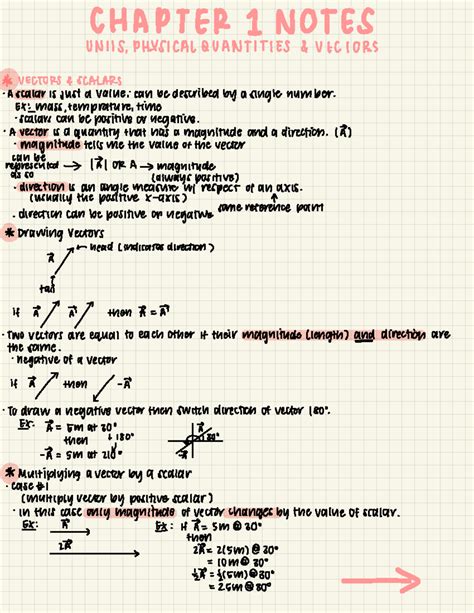 CHAPTER 1 NOTES
UNITS, PHYSICAL QUANTITIES & VECTORS
* VECTORS & SCALARS
· A scalar is just a value. can be described by a single number.
Ex: mass, temprature, time
· scalars can be positive or negative.
· A vector is a quantity that has a magnitude and a direction. (A⃗)
· magnitude tells me the value of the vector
can be
represented → |A⃗| OR A → magnitude
as so
(always positive)
· direction is an angle measure w/ respect of an axis.
(usually the positive x-axis)
same reference point
· direction can be positive or negative
* Drawing vectors
head (indicates direction)
A⃗
tail
if A⃗ A⃗' then A⃗ = A⃗'
· Two vectors are equal to each other if their magnitude (length) and direction are
the same.
· negative of a vector
if A⃗ then -A⃗
· To draw a negative vector then switch direction of vector 180°.
Ex: A⃗ = 5m at 30°
then ↓ 180°
-A⃗ = 5m at 210°
A⃗ 30°
* Multiplying a vector by a scalar
· case #1
(multiply vector by positive scalar)
· in this case only magnitude of vector changes by the value of scalar.
Ex: A⃗
2A⃗
Ex: if A⃗ = 5m @ 30°
then
2A⃗ = 2(5m) @ 30°
= 10m @ 30°
½A⃗ = ½(5m) @ 30°
= 2.5m @ 30°